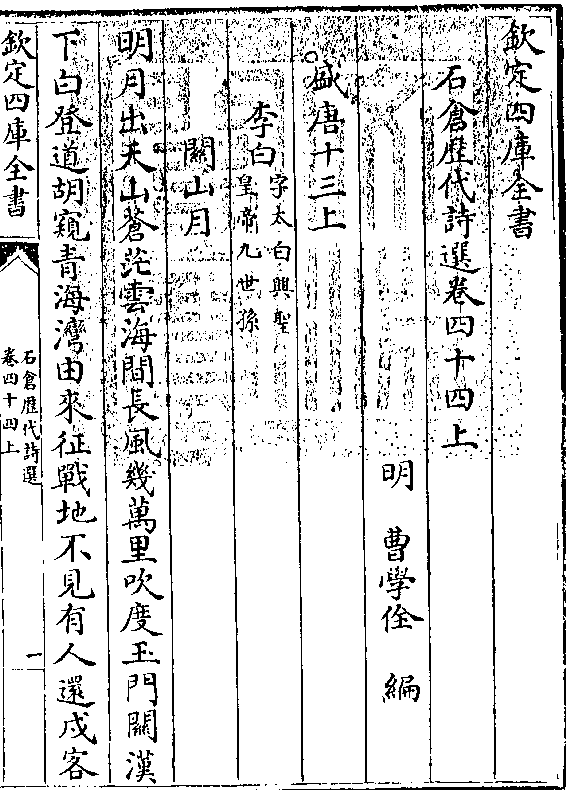 欽定四庫全書
石倉歴代詩選卷四十四上
明 曹學佺 編
盛唐十三上
李白字太白興聖
皇帝九世孫
關山月
明月出天山蒼茫雲海間長風幾萬里吹度玉門關漢
下白登道胡窺青海灣由來征戰地不見有人還戍客
欽定四庫全書
石倉歴代詩選
卷四十四上
一